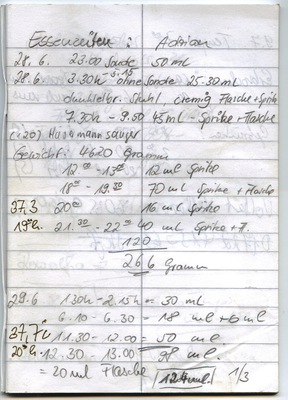 Essenzeiten: Adrian
28.6. 23.00 Sonde 50 ml
28.6. 3.30h - 5.15 ohne Sonde 25-30 ml
dunkelbr. Stuhl, cremig Flasche + Spritze
7.30h - 9.50 45 ml - Spritze + Flasche
(+20)
Gewicht: 4620 Gramm
12 ml Spritze
18 - 19.30 70 ml Spritze + Flasche
37,3 20 16 ml Spritze
21.30 - 22 40 ml Spritze + Fl.
120
266 gramm
29.6 130h - 2.15h = 30 ml
6.10 - 6.30 = 18 ml
37,7 11.30 - 12.00 = 50 ml
12.30 - 13.00 ml
= 20 ml + Flasche 124 ml 1/3